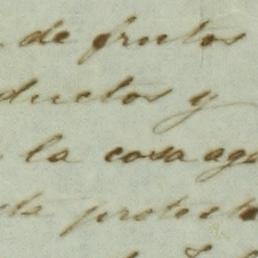 de frutos
ductos y
la cosa age
protect